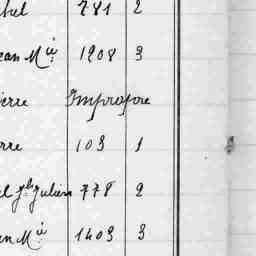 chel 781 2
ean M ie 1908 3
ierre Impropre
rre 103 1
el Jh Julien 778 2
an M ie 1403 3